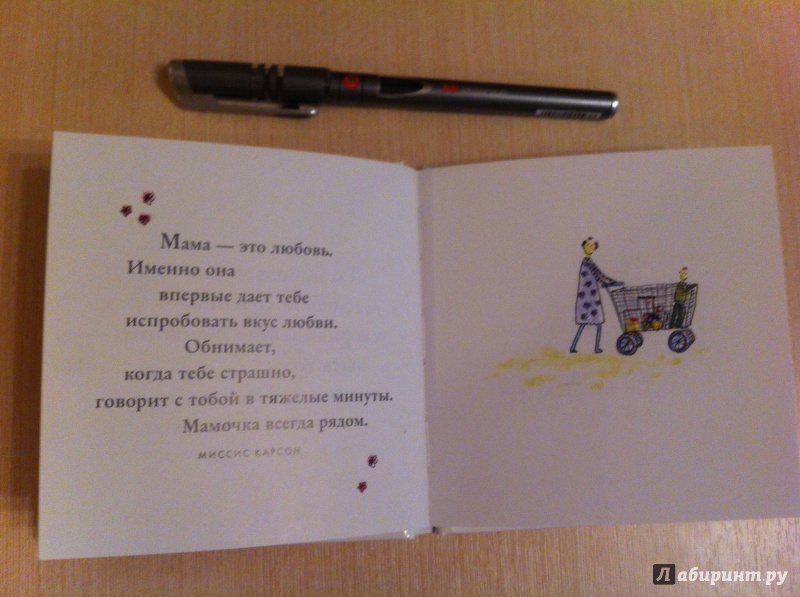 Мама — это любовь.
Именно она
впервые дает тебе
испробовать вкус любви.
Обнимает,
когда тебе страшно,
говорит с тобой в тяжелые минуты.
Мамочка всегда рядом.
МИССИС КАРСОН
Лабиринт.ру